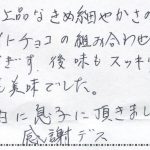 上品なきめ細やかさの
イトチョコの組み合わせ
ぎず、後味もスッキリ
も美味でした。
日に息子に頂きまし
感謝デス